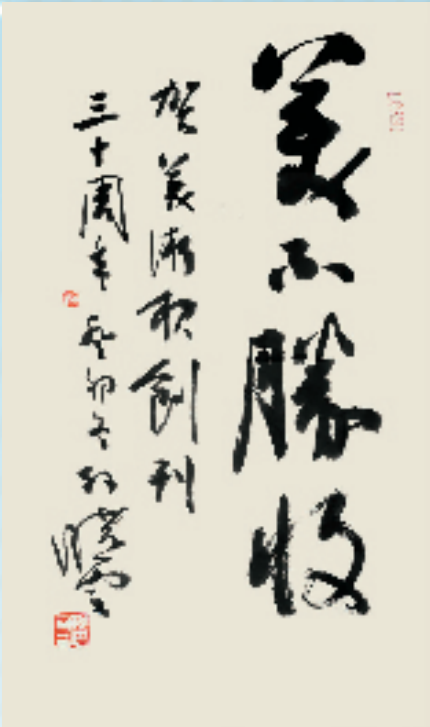 美不勝收
賀美術報創刊
三十周年 癸卯冬 曉雲